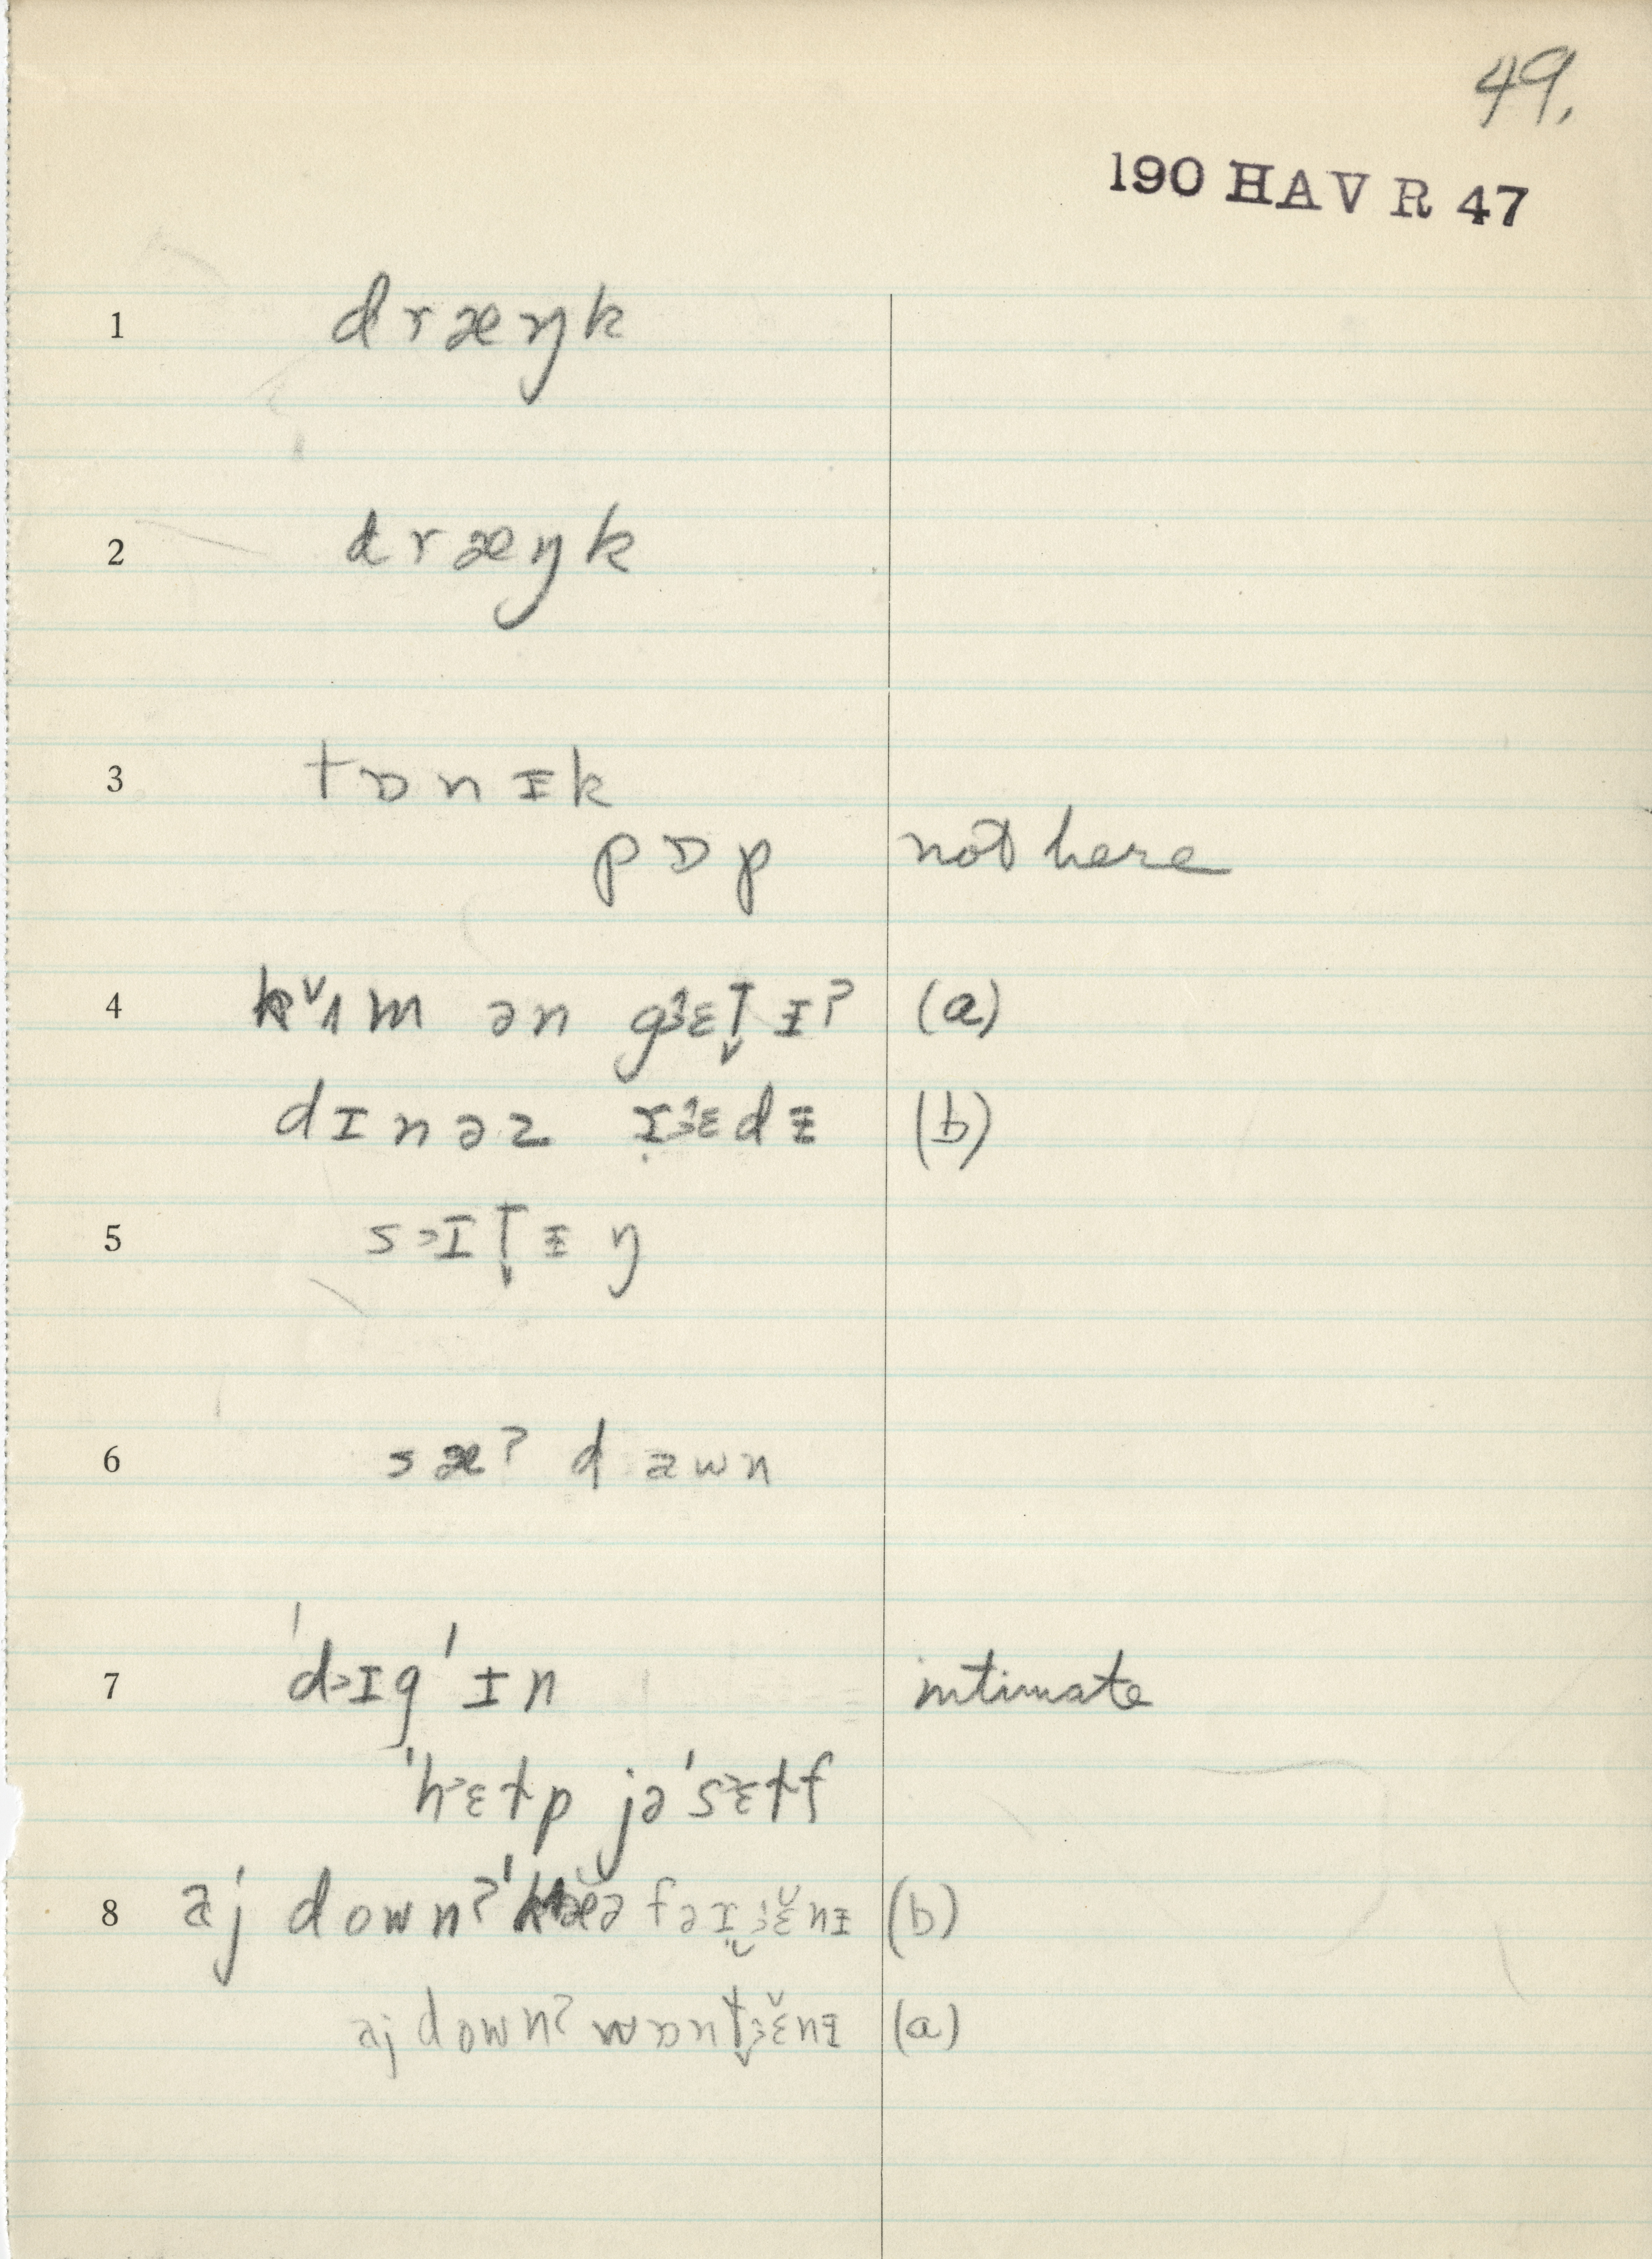 49.
190 HAV R 47
1 d r æ ŋ k
2 d r æ ŋ k
3 t ɒ n ɪ k
p ɒ p not here
4 kᵛʌm ən gɜɛt̬ ɪʔ (a)
d ɪ n ə z rɜɛdɪ (b)
5 s ɪ t̬ ɪ ŋ
6 sæʔ d awn
7 'd>ɪg'ɪn intimate
'h>ɛɫp jə'sɛɫf
8 aj down?ˈ fə (b)
aj down? wɒn (a)